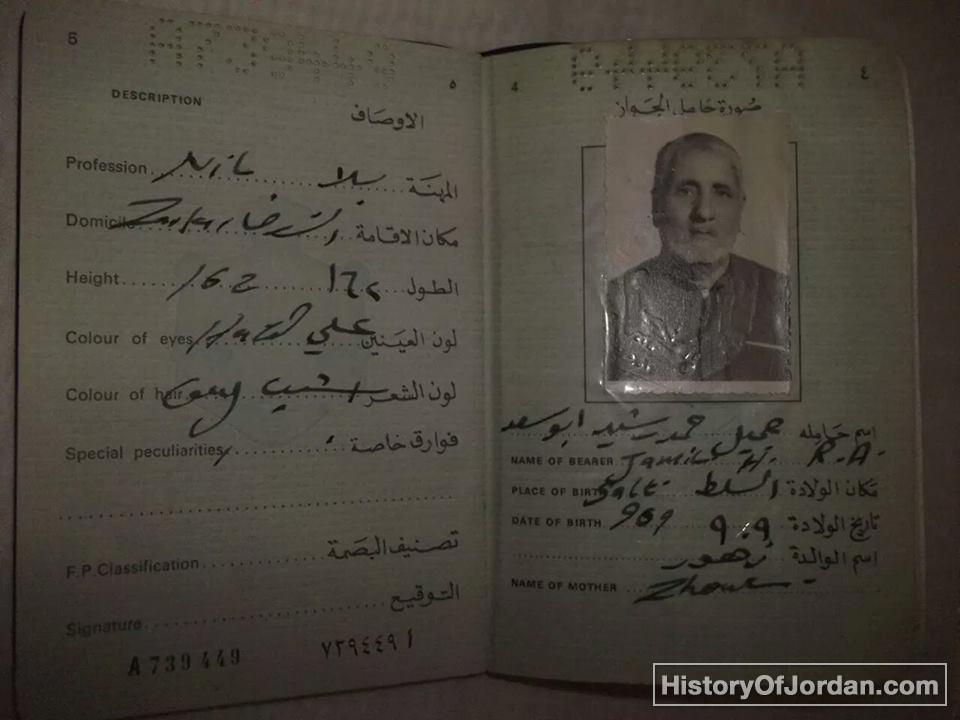 4 ٤
صورة حامل الجواز
اسم حامله جميل حمد رشيد ابو سعد
NAME OF BEARER Jamil H. R.A.
PLACE OF BIRTH Salt. السلط مكان الولادة
DATE OF BIRTH 909 ٩٠٩ تاريخ الولادة
اسم الوالدة زهور
NAME OF MOTHER
5 ٥
DESCRIPTION الاوصاف
Profession Nil بلا المهنة
Domicile Zarka الزرقاء مكان الاقامة
Height 162 ١٦٢ الطول
Colour of eyes Hazel عسلي لون العينين
Colour of hair Grey اشيب لون الشعر
Special peculiarities فوارق خاصة
F.P. Classification تصنيف البصمة
Signature التوقيع
A 739449 ٧٣٩٤٤٩ أ
HistoryOfJordan.com